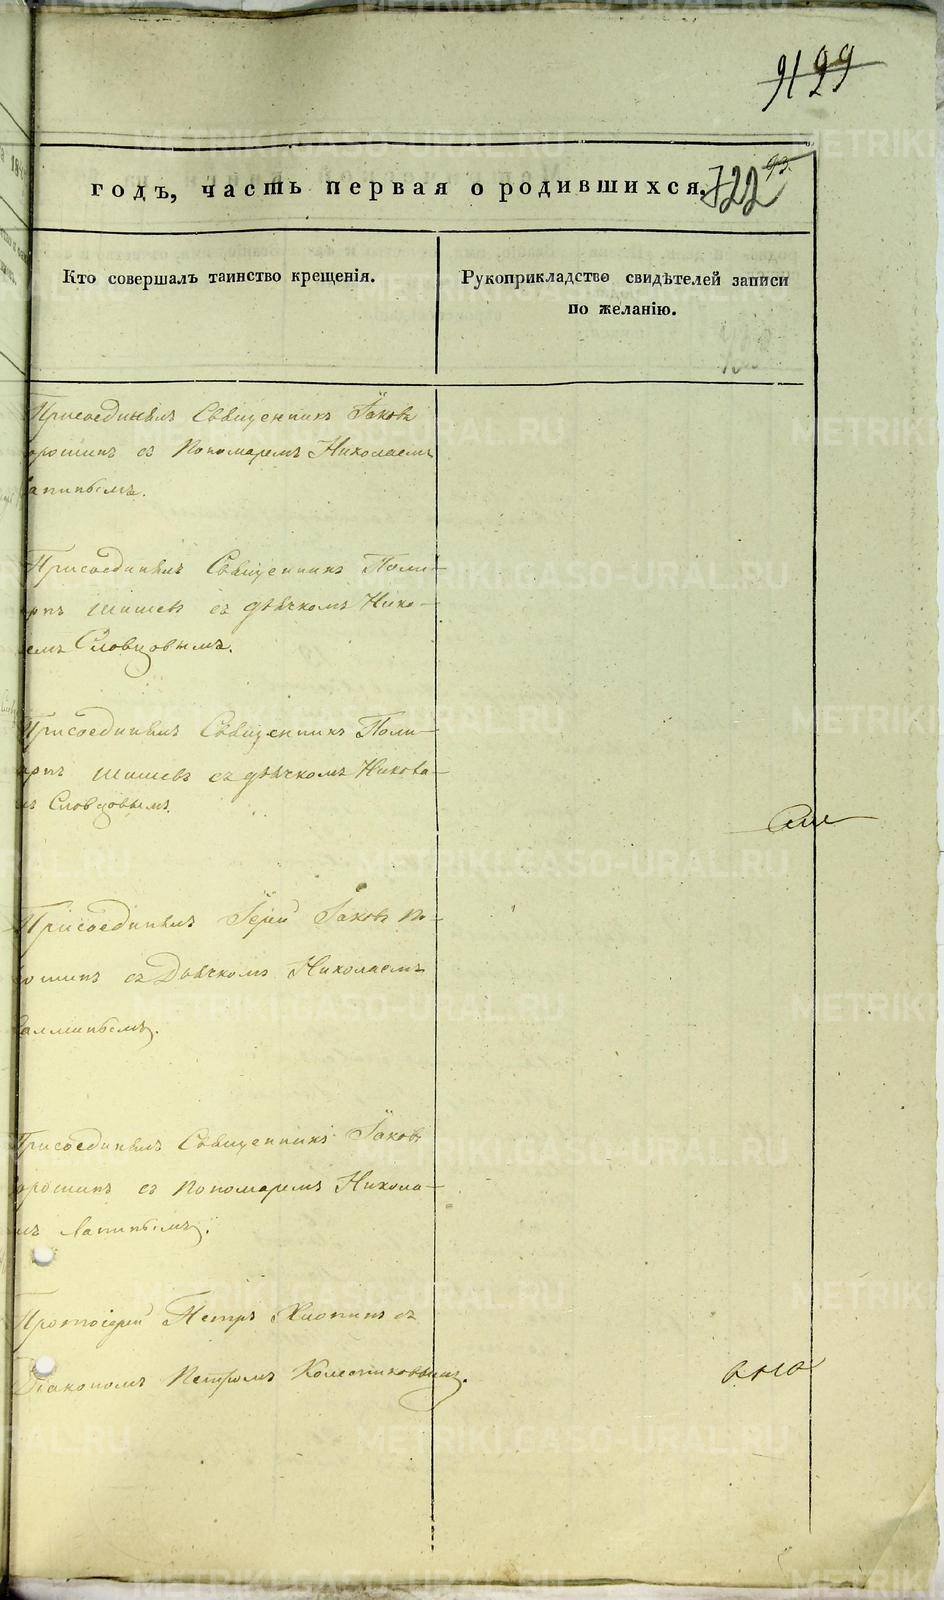 9199
годъ, часть первая о родившихся.
722
93.
Кто совершалъ таинство крещенія.
Рукоприкладство свидѣтелей записи
по желанію.
Присоединялъ Священникъ Іаковъ
орошинъ съ Пономаремъ Николаемъ
апинымъ.
Присоединялъ Священникъ Поли-
рпъ Шишевъ съ дьячкомъ Нико-
емъ Словцовымъ.
Присоединялъ Священникъ Поли-
арпъ Шишевъ съ дьячкомъ Никола-
мъ Словцовымъ.
Присоединялъ Іерей Іаковъ По-
рошинъ съ Дьячкомъ Николаемъ
Присоединялъ Священникъ Іаковъ
орошинъ съ Пономаремъ Никола-
мъ Лапинымъ.
Протоіерей Петръ Хлопинъ съ
Діакономъ Петромъ Колесниковымъ.
METRIKI.GASO-URAL.RU